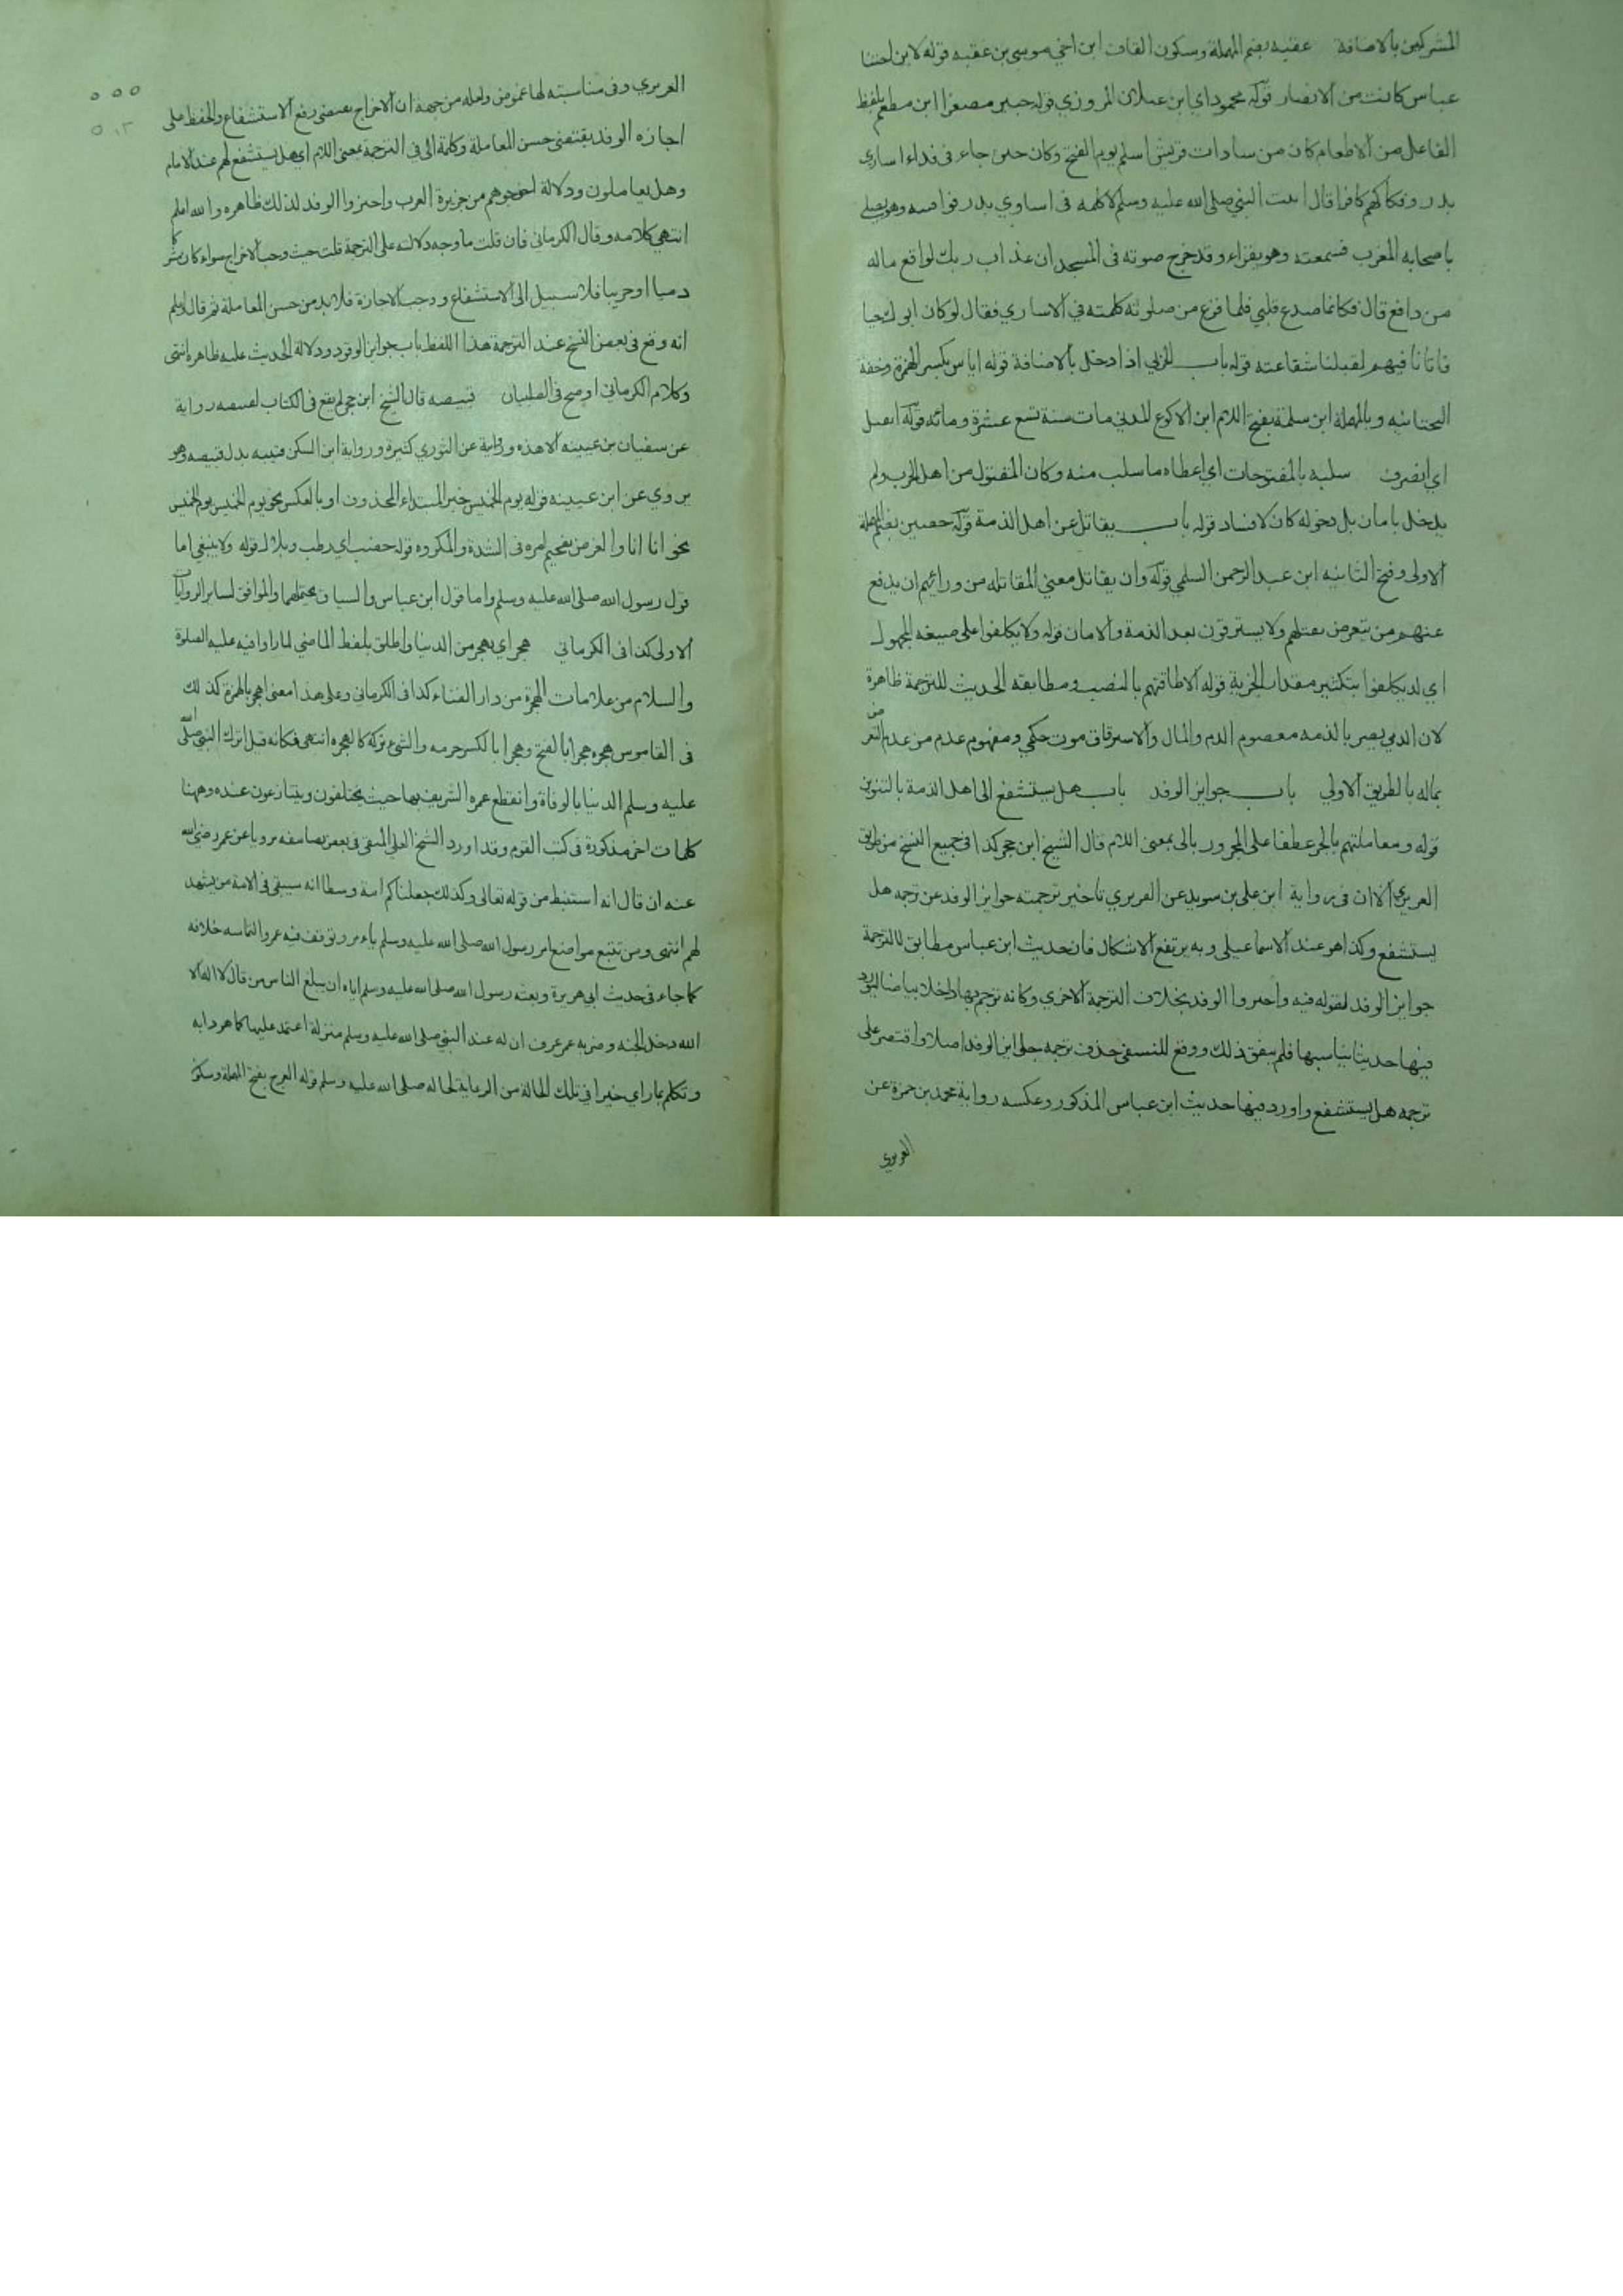 المشركين بالاضافة عقبه بضم المهملة وسكون القاف ابن اخي موسى بن عقبه قوله لابن اختنا
عباس كانت من الانصار قوله محمود اي ابن غيلان المروزي قوله جبير مصغرا ابن مطعم بلفظ
الفاعل من الاطعام كان من سادات قريش اسلم يوم الفتح وكان حين جاء في فداء اسارى
بدر وفكاكهم كافرا قال اتيت النبي صلى الله عليه وسلم لاكلمه في اساري بدر فوافيته وهو يصلي
باصحابه المغرب فسمعته وهو يقراء وقد خرج صوته في المسجد ان عذاب ربك لواقع ماله
من دافع قال فكانما صدع قلبي فلما فرغ من صلوته كلمته في الاساري فقال لو كان ابوك حيا
فاتانا فيهم لقبلنا شفاعته قوله باب الحربي اذا دخل بالاضافة قوله اياس بكسر الهمزة وخفة
التحتانيه وبالمهملة ابن سلمة بفتح اللام ابن الاكوع المدني مات سنة تسع عشرة ومائه قوله انفتل
اي انصرف سلبه بالمفتوحات اي اعطاه ما سلب منه وكان المقتول من اهل الحرب ولم
يدخل بامان بل دخوله كان لافساد قوله باب يقاتل عن اهل الذمة قوله حصين بضم المهملة
الاولى وفتح الثانيه ابن عبد الرحمن السلمي قوله وان يقاتل معنى المقاتله من ورائهم ان يدفع
عنهم من يتعرض بقتلهم ولا يسترقون بعد الذمة والامان قوله ولا يكلفوا على صيغه المجهول
اي لا يكلفوا بتكثير مقدار الجزية قوله الا طاقتهم بالنصب ومطابقه الحديث للترجمة ظاهرة
لان الذمي يصير بالذمه معصوم الدم والمال والاسترقاق موت حكمي ومفهوم عدم من عدم التعرض
بماله بالطريق الاولي باب جوايز الوفد باب هل يستشفع الى اهل الذمة بالتنوين
قوله ومعاملتهم بالجر عطفا على المجرور بالى بمعنى اللام قال الشيخ ابن حجر كذا في جميع النسخ من طريق
الفربري الا ان في رواية ابن علي بن سويد عن الفربري تاخير ترجمته جوايز الوفد عن ترجمه هل
يستشفع وكذا هو عند الاسماعيلي وبه يرتفع الاشكال فان حديث ابن عباس مطابق للترجمة
جوايز الوفد لقوله فيه واجيزوا الوفد بخلاف الترجمة الاخري وكانه ترجم بها واخلا بياضا ليورد
فيها حديثا يناسبها فلم يتفق ذلك ووقع للنسفي حذف ترجمه جوايز الوفد اصلا واقتصر على
ترجمه هل يستشفع واورد فيها حديث ابن عباس المذكور وعكسه رواية محمد بن حمزة عن
الفربري
الفربري وفي مناسبته لها غموض ولعله من جهة ان الاخراج يقتضي رفع الاستشفاع والحفظ على
اجازه الوفد يقتضي حسن المعاملة وكلمة الى في الترجمة بمعنى اللام اي هل يستشفع لهم عند الامام
وهل يعاملون ودلالة اخرجوهم من جزيرة العرب واجيزوا الوفد لذلك ظاهره والله اعلم
انتهي كلامه وقال الكرماني فان قلت ما وجه دلالته على الترجمة قلت حيث وجب الاخراج سواء كان مشركا
ذميا او حربيا فلا سبيل الى الاستشفاع ووجب الاجازة فلا بد من حسن المعاملة ثم قال اعلم
انه وقع في بعض النسخ عند الترجمة هذا اللفظ باب جوايز الوفود ودلالة الحديث عليه ظاهره انتهى
وكلام الكرماني اوضح في البيان قبيصه قال الشيخ ابن حجر لم يقع في الكتاب لقبيصه رواية
عن سفيان بن عيينه الا هذه وروايته عن الثوري كثيرة ورواية ابن السكن قتيبه بدل قبيصه وهو
يروي عن ابن عيينه قوله يوم الخميس خبر المبتداء المحذوف او بالعكس نحو يوم الخميس يوم الخميس
نحو انا انا والغرض تفخيم امره في الشدة والمكروه قوله خضب اي رطب وبلل قوله ولا ينبغي اما
قول رسول الله صلى الله عليه وسلم واما قول ابن عباس والسياق يحتملهما والموافق لسائر الروايات
الاولى كذا في الكرماني هجر اي يهجر من الدنيا واطلق بلفظ الماضي لما راوا فيه عليه الصلوة
والسلام من علامات الهجرة من دار الفناء كذا في الكرماني وعلى هذا معنى اهجر بالهمزة كذلك
في القاموس هجره هجرا بالفتح وهجرانا بالكسر حرمه والشيء تركه كاهجره انتهى فكانه قيل اترك النبي صلى الله
عليه وسلم الدنيا بالوفاة وانقطع عمره الشريف بها حيث يختلفون ويتنازعون عنده وههنا
كلمات اخر مذكورة في كتب القوم وقد اورد الشيخ العلي المتقي في بعض تصانيفه مرويا عن عمر رضي الله
عنه ان قال انه استنبط من قوله تعالى وكذلك جعلناكم امة وسطا انه سيبقى في الامة من يشهد
لهم انتهى ومن تتبع مواضع امر رسول الله صلى الله عليه وسلم بامر وتوقف فيه عمر والتماسه خلافه
كما جاء في حديث ابي هريرة وبعثه رسول الله صلى الله عليه وسلم اياه ان يبلغ الناس من قال لا اله الا
الله دخل الجنه وضربه عمر عرف ان له عند النبي صلى الله عليه وسلم منزلة اعتمد عليها كما هو دابه
وتكلم بما راي خيرا في تلك الحالة من الرعاية لحاله صلى الله عليه وسلم قوله العرج بفتح المهملة وسكون